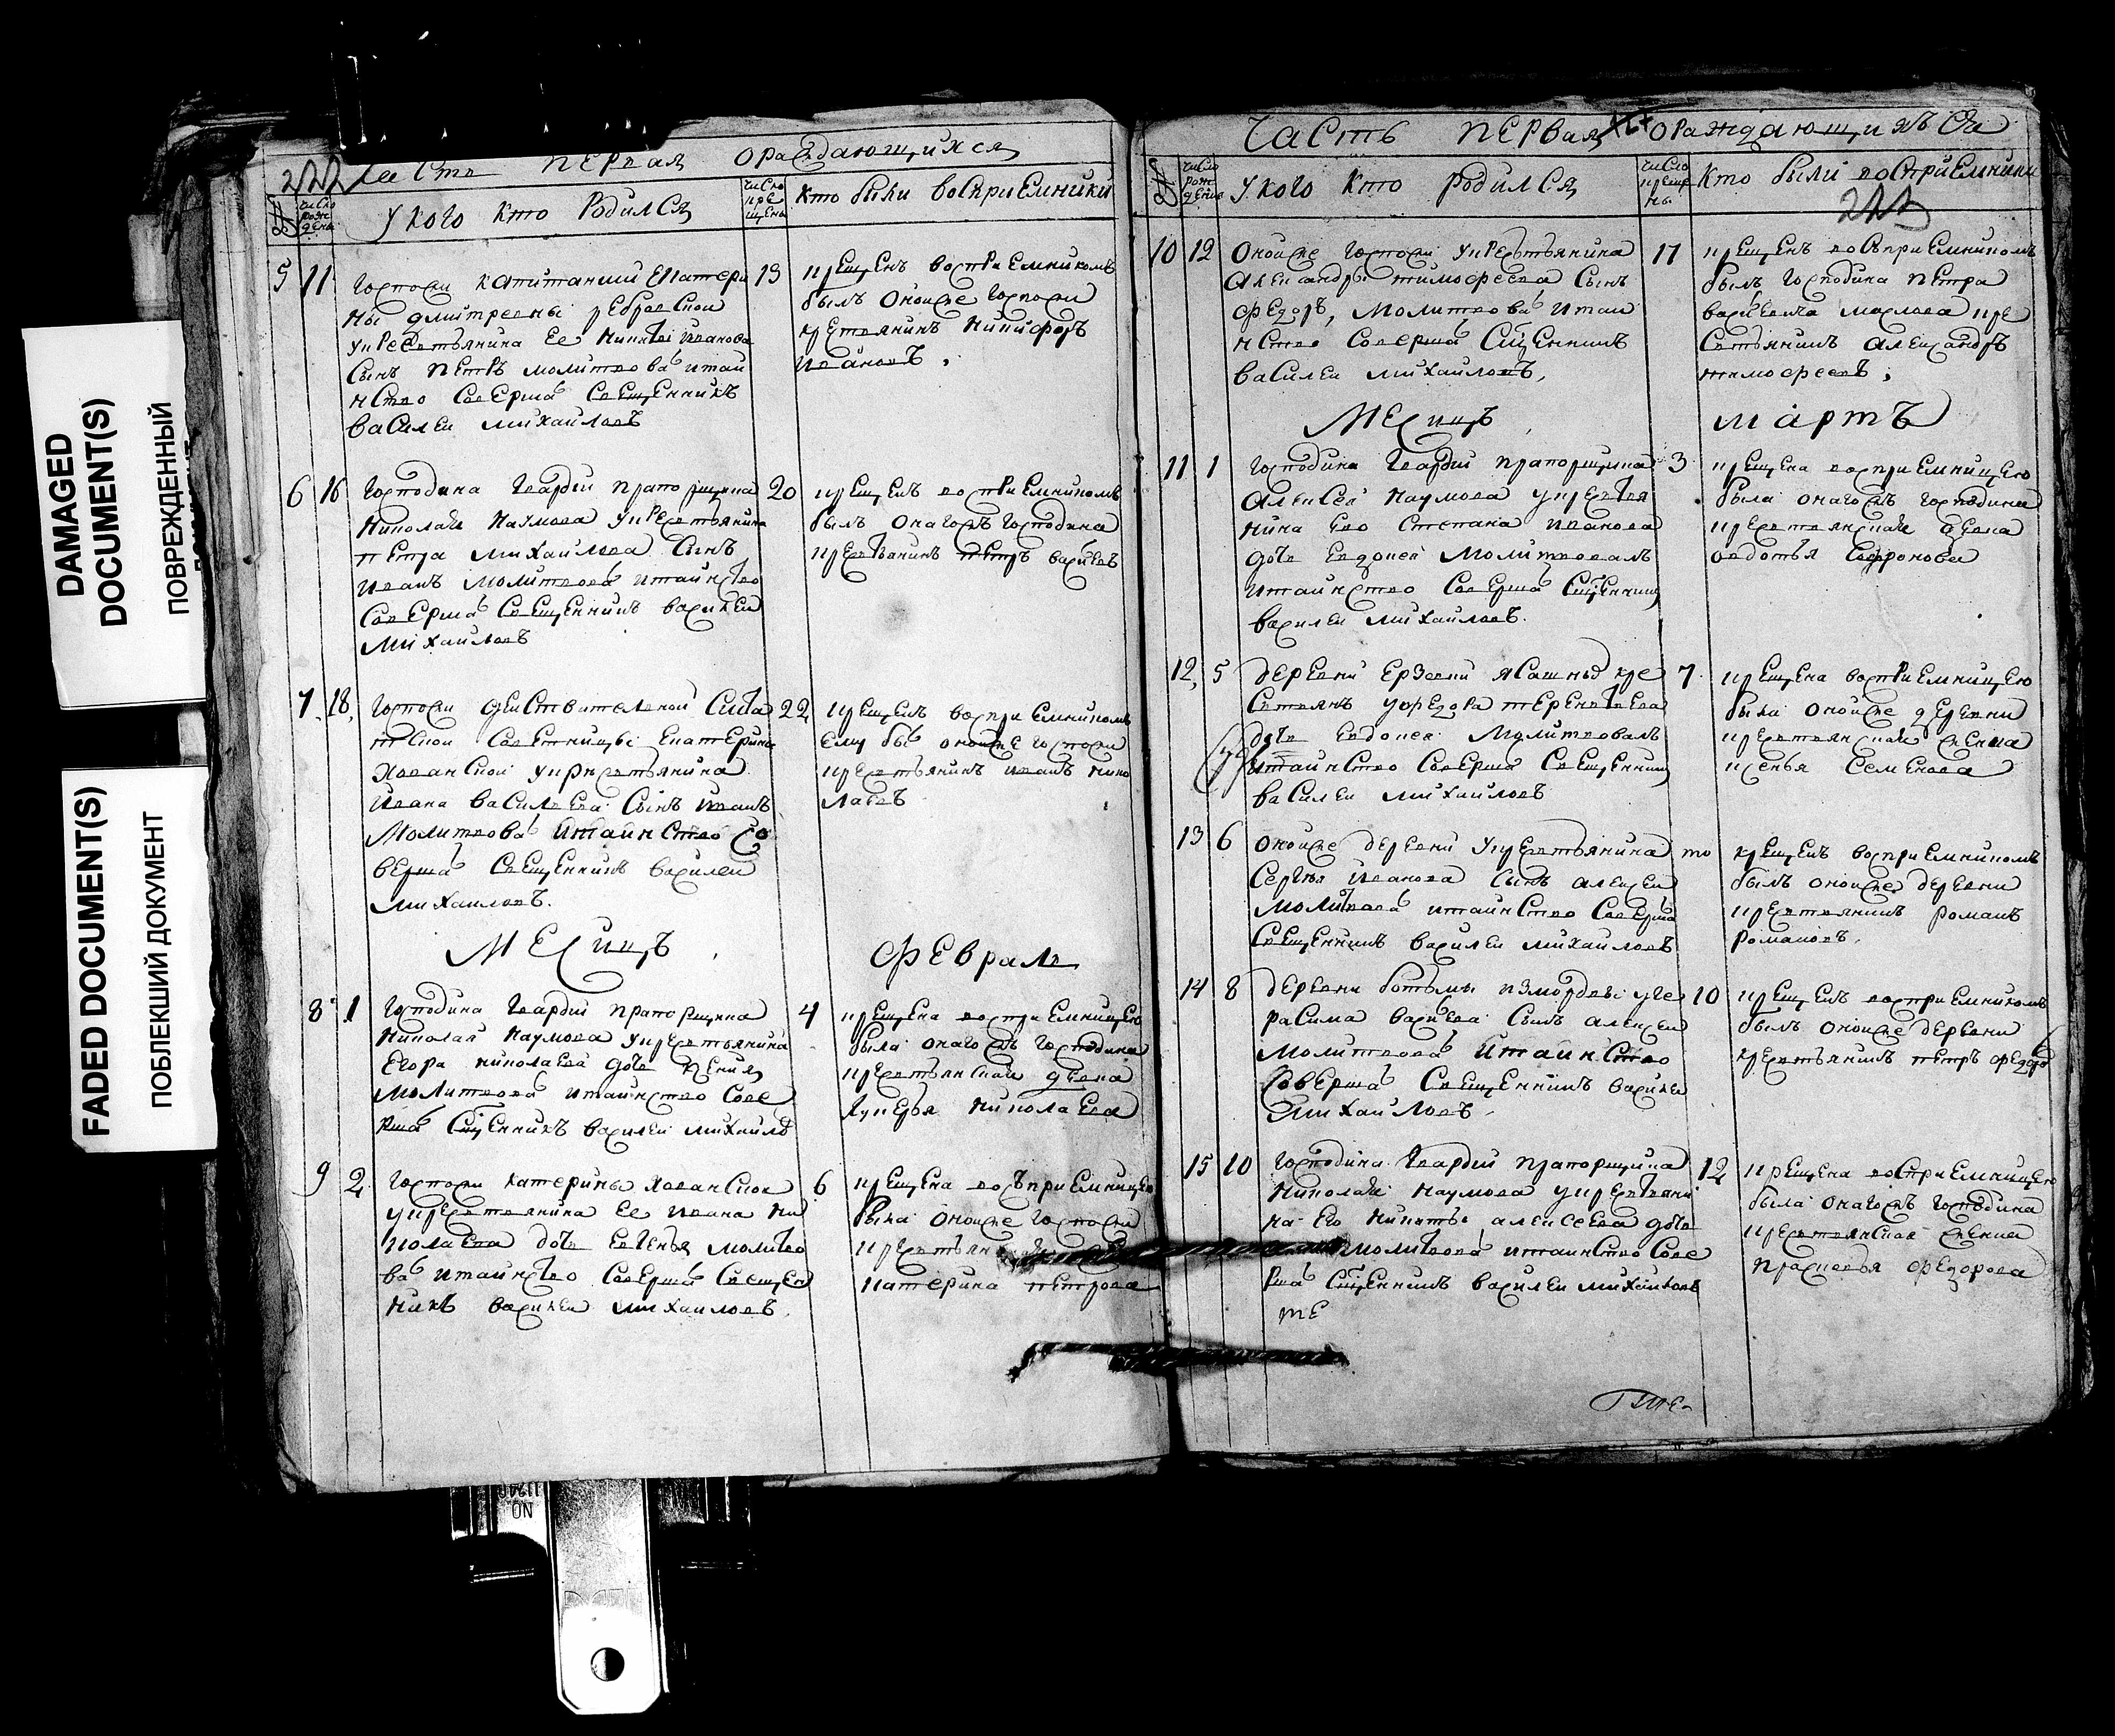 DAMAGED
DOCUMENT(S)
ПОВРЕЖДЕННЫЙ
FADED DOCUMENT(S)
ПОБЛЕКШИЙ ДОКУМЕНТ
Часть первая ораждающихся
число рож дени
У кого кто родился
число кре щени
кто были восприемники
5 11
госпожи капитанши Екатери
ны дмитревны ребровской
укрестьянина ее никиты иванова
сынъ петръ молитвовалъ итаи
нство соверша свещенникъ
василеи михаиловъ
13
крещенъ восприемникомъ
былъ оноиже госпожи
крестьянинъ никифоръ
ивановъ
6 16
господина гвардіи прапорщика
николая наумова укрестьянина
петра михаилова сынъ
иванъ молитвова итаинство
соверша свещенникъ василеи
михаиловъ
20
крещенъ восприемникомъ
былъ онагожъ господина
крестьянинъ петръ васильевъ
7 18
госпожи деиствителной статс
тской советницы екатерины
хованской укрестьянина
ивана василева сынъ иванъ
молитвова итаинство со
верша свещенникъ василеи
михаиловъ
22
крещенъ восприемникомъ
ему бы оноиже госпожи
крестьянинъ иванъ нико
лаевъ
МЕСяцъ февраль
8 1
господина гвардіи прапорщика
николая наумова укрестьянина
егора николаева дочь
молитвова итаинство сове
рша сщенникъ василеи михаиловъ
4
крещена восприемницею
была онагожъ господина
крестьянская девка
лукерья николаева
9 2
госпожи катерины хованской
укрестьянина ее ивана ни
колаева дочь евгенья молитво
ва итаинство соверша свещен
никъ василеи михаиловъ
6
крещена восъприемницею
была оноиже госпожи
крестьянская
катерина петрова
Часть первая ораждающихъся
число рож дение
У кого кто родился
число креще ны
Кто были восприемники
10 12
оноиже госпожи укрестьянина
александры тимофеева сынъ
федоръ, молитвовалъ итаи
нство соверша сщенникъ
василеи михаиловъ,
17
крещенъ восприемникомъ
былъ господина петра
васильевича маслова кре
стьянинъ александръ
тимофеевъ
МЕСяцъ мартъ
11 1
господина гвардіи прапорщика
алексея наумова укрестья
нина ево степана иванова
дочь евдокея молитвовалъ
итаинство соверша сщенникъ
василеи михаиловъ.
3
крещена восприемницею
была онагожъ господина
крестьянская девка
авдотья софронова
12 5
деревни ерзовки ясашныхъ кре
стьянъ уфедора терентьева
дочь евдокея молитвовалъ
итаинство соверша свещенникъ
василеи михаиловъ
7
крещена восприемницею
была оноиже деревни
крестьянская женка
ксенья семенова
13 6
оноиже деревни укрестьянина
сергея иванова сынъ алексеи
молитвова итаинство соверша
свещенникъ василеи михаиловъ
то
крещенъ восприемникомъ
былъ оноиже деревни
крестьянинъ романъ
романовъ.
14 8
деревни ботьмы измордвы уге
расима васильева сынъ алексеи
молитвова итаинство
соверша свещенникъ василеи
михаиловъ
10
крещенъ восприемникомъ
былъ оноиже деревни
крестьянинъ петръ федоровъ
15 10
господина гвардіи прапорщика
николая наумова укрестьяни
на его никиты алексеева дочь
молитвова итаинство сове
рша сщенникъ василеи михаиловъ
те
12
крещена восприемницею
была онагожъ господина
крестьянская женка
прасковья федорова